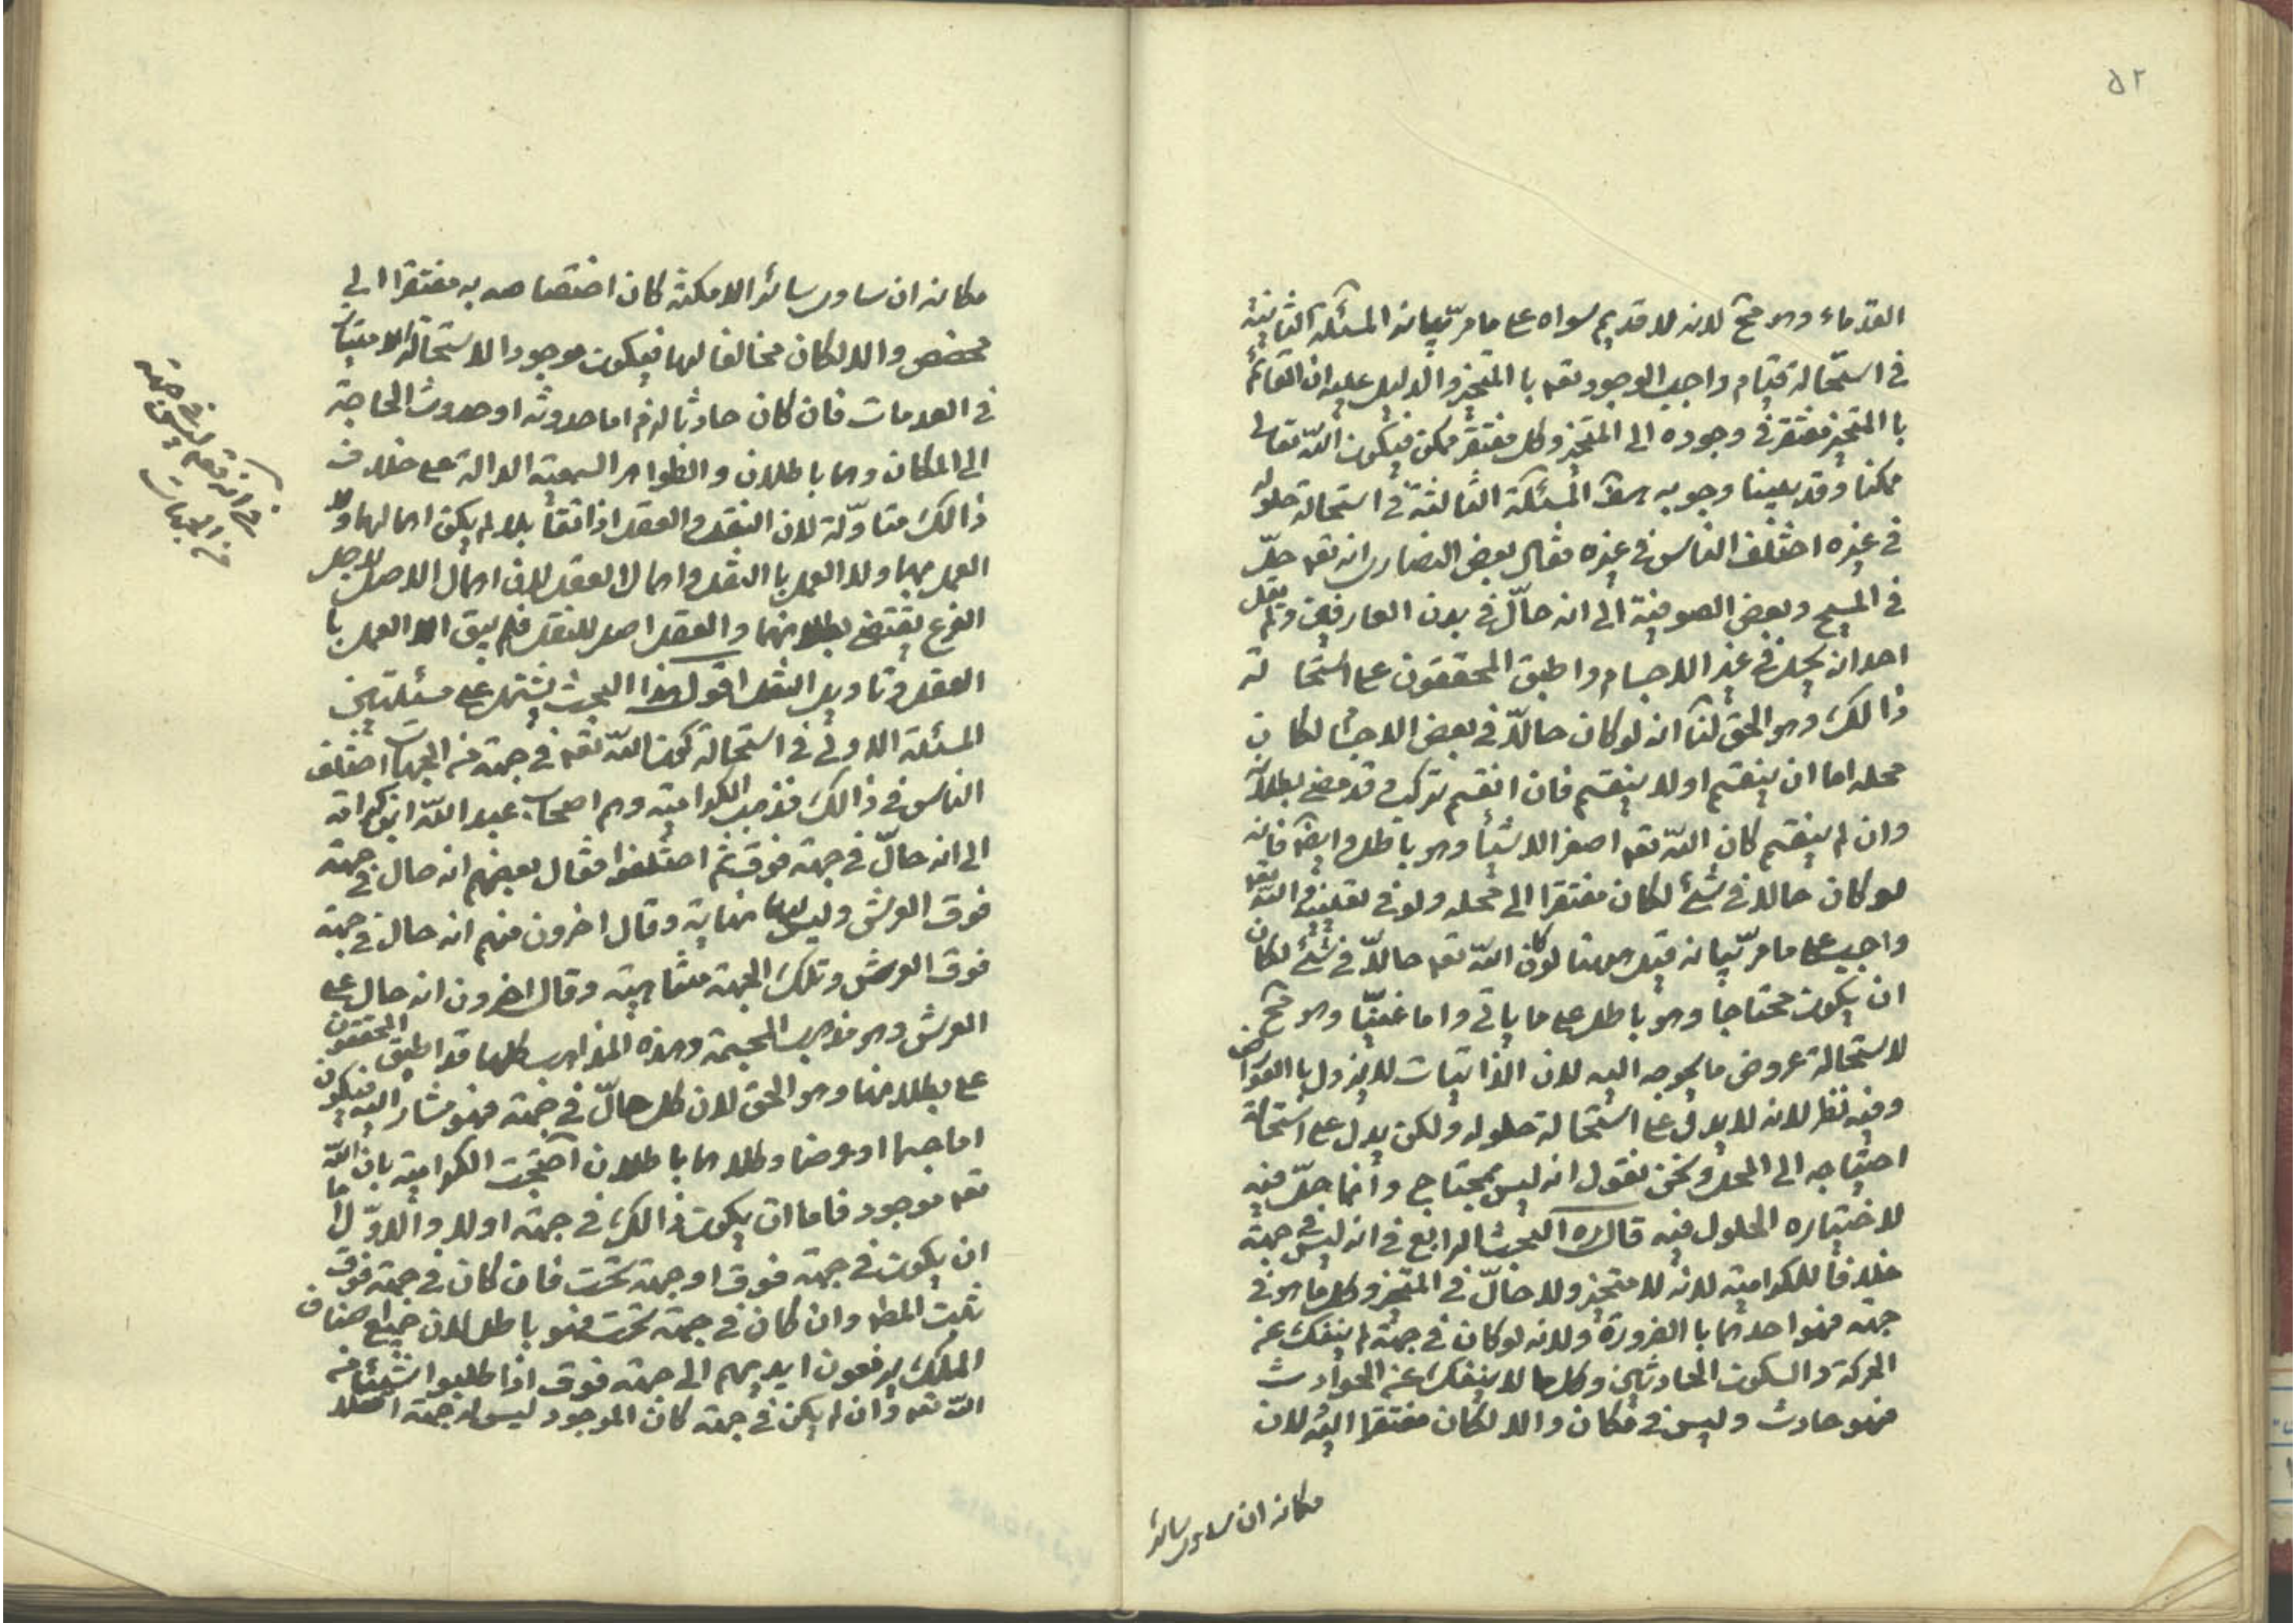 ٥٢
القدماء وهو مح لانه لا قديم سواه على ما مر بيانه المسئلة الثانية
في استحالة قيام واجب الوجود تعه با المتحيز والدليل عليه ان القائم
با المتحيز مفتقر في وجوده الى المتحيز وكل مفتقر ممكن فيكون الله تعالى
ممكنا وقد بينا وجوبه هف المسئلة الثالثة في استحالة حلوله
في غيره اختلف الناس في غيره فقال بعض النصارى انه تعه حلّ
في المسيح وبعض الصوفية الى انه حالّ في بدن العارفين ولم يقل
احد انه يحل في غير الاجسام واطبق المحققون على استحالة
ذالك وهو الحق لنا انه لو كان حالاّ في بعض الاجسا لكان
محله اما ان ينقسم او لا ينقسم فان انقسم تركب وقد مضى بطلانه
وان لم ينقسم كان الله تعه اصغر الاشيا وهو باطل وايضا فانه
لو كان حالا في شئ لكان مفتقرا الى محله ولو في تعينه والله تعه
واجب على ما مر بيانه قيل عليه لو كان الله تعه حالاّ في شئ لكان
ان يكون محتاجا وهو باطل على ما ياتي واما غنيّا وهو مح
لاستحالة عروض ما يحوجه اليه لان الذاتيات لا يزول با العوارض
وفيه نظر لانه لا يدل على استحالة حلوله ولكن يدل على استحالة
احتياجه الى المحل ونحن نقول انه ليس بمحتاج وانما حلّ فيه
لاختياره الحلول فيه قال ره البحث الرابع في انه ليس في جهة
خلافا للكرامية لانه لا متحيز ولا حالّ في المتحيز وكل ما هو في
جهة فهو احدهما با الضرورة ولانه لو كان في جهة لم ينفك عن
الحركة والسكون الحادثين وكل ما لا ينفك عن الحوادث
فهو حادث وليس في مكان والا لكان مفتقرا اليه لان
مكانه ان ساوى سائر
مكانه ان ساوى سائر الامكنة كان اختصاصه به مفتقرا الى
مخصص والا لكان مخالفا لها فيكون موجودا لاستحالة الامتياز
في العدمات فان كان حادثا لزم اما حدوثه او حدوث الحاجة
الى المكان وهما باطلان والظواهر السمعية الدالة على خلاف
ذالك متاوّلة لان النقل والعقل اذا تقابلا لم يكن اهمالهما ولا
العمل بهما ولا العمل با النقل واهمال العقل لان اهمال الاصل لاجل
الفرع يقتضي بطلانهما والعقل اصل للنقل فلم يبق الا العمل با
العقل وتاويل النقل اقول هذا البحث يشتمل على مسئلتين
المسئلة الاولى في استحالة كون الله تعه في جهة من الجهات اختلف
الناس في ذالك فذهب الكرامية وهم اصحاب عبد الله ابن كرامة
الى انه حالّ في جهة فوق ثم اختلفوا فقال بعضهم انه حال في جهة
فوق العرش وليس لها نهاية وقال اخرون منهم انه حال في جهة
فوق العرش وتلك الجهة متناهية وقال اخرون انه حال على
العرش وهو مذهب المجسمة وهذه المذاهب كلها قد اطبق المحققون
على بطلانها وهو الحق لان كل حالّ في جهة فهو مشار اليه فيكون
اما جسما او عرضا وكلاهما باطلان احتجت الكرامية بان الله
تعه موجود فاما ان يكون ذالك في جهة او لا والاوّل اما
ان يكون في جهة فوق او جهة تحت فان كان في جهة فوق
ثبت المط وان كان في جهة تحت فهو باطل لان جميع اصناف
الملك يرفعون ايديهم الى جهة فوق اذا طلبوا شيئا من
الله تعه وان لم يكن في جهة كان الموجود ليس له جهة اصلا
في انه تعه ليس في جهة
من الجهات